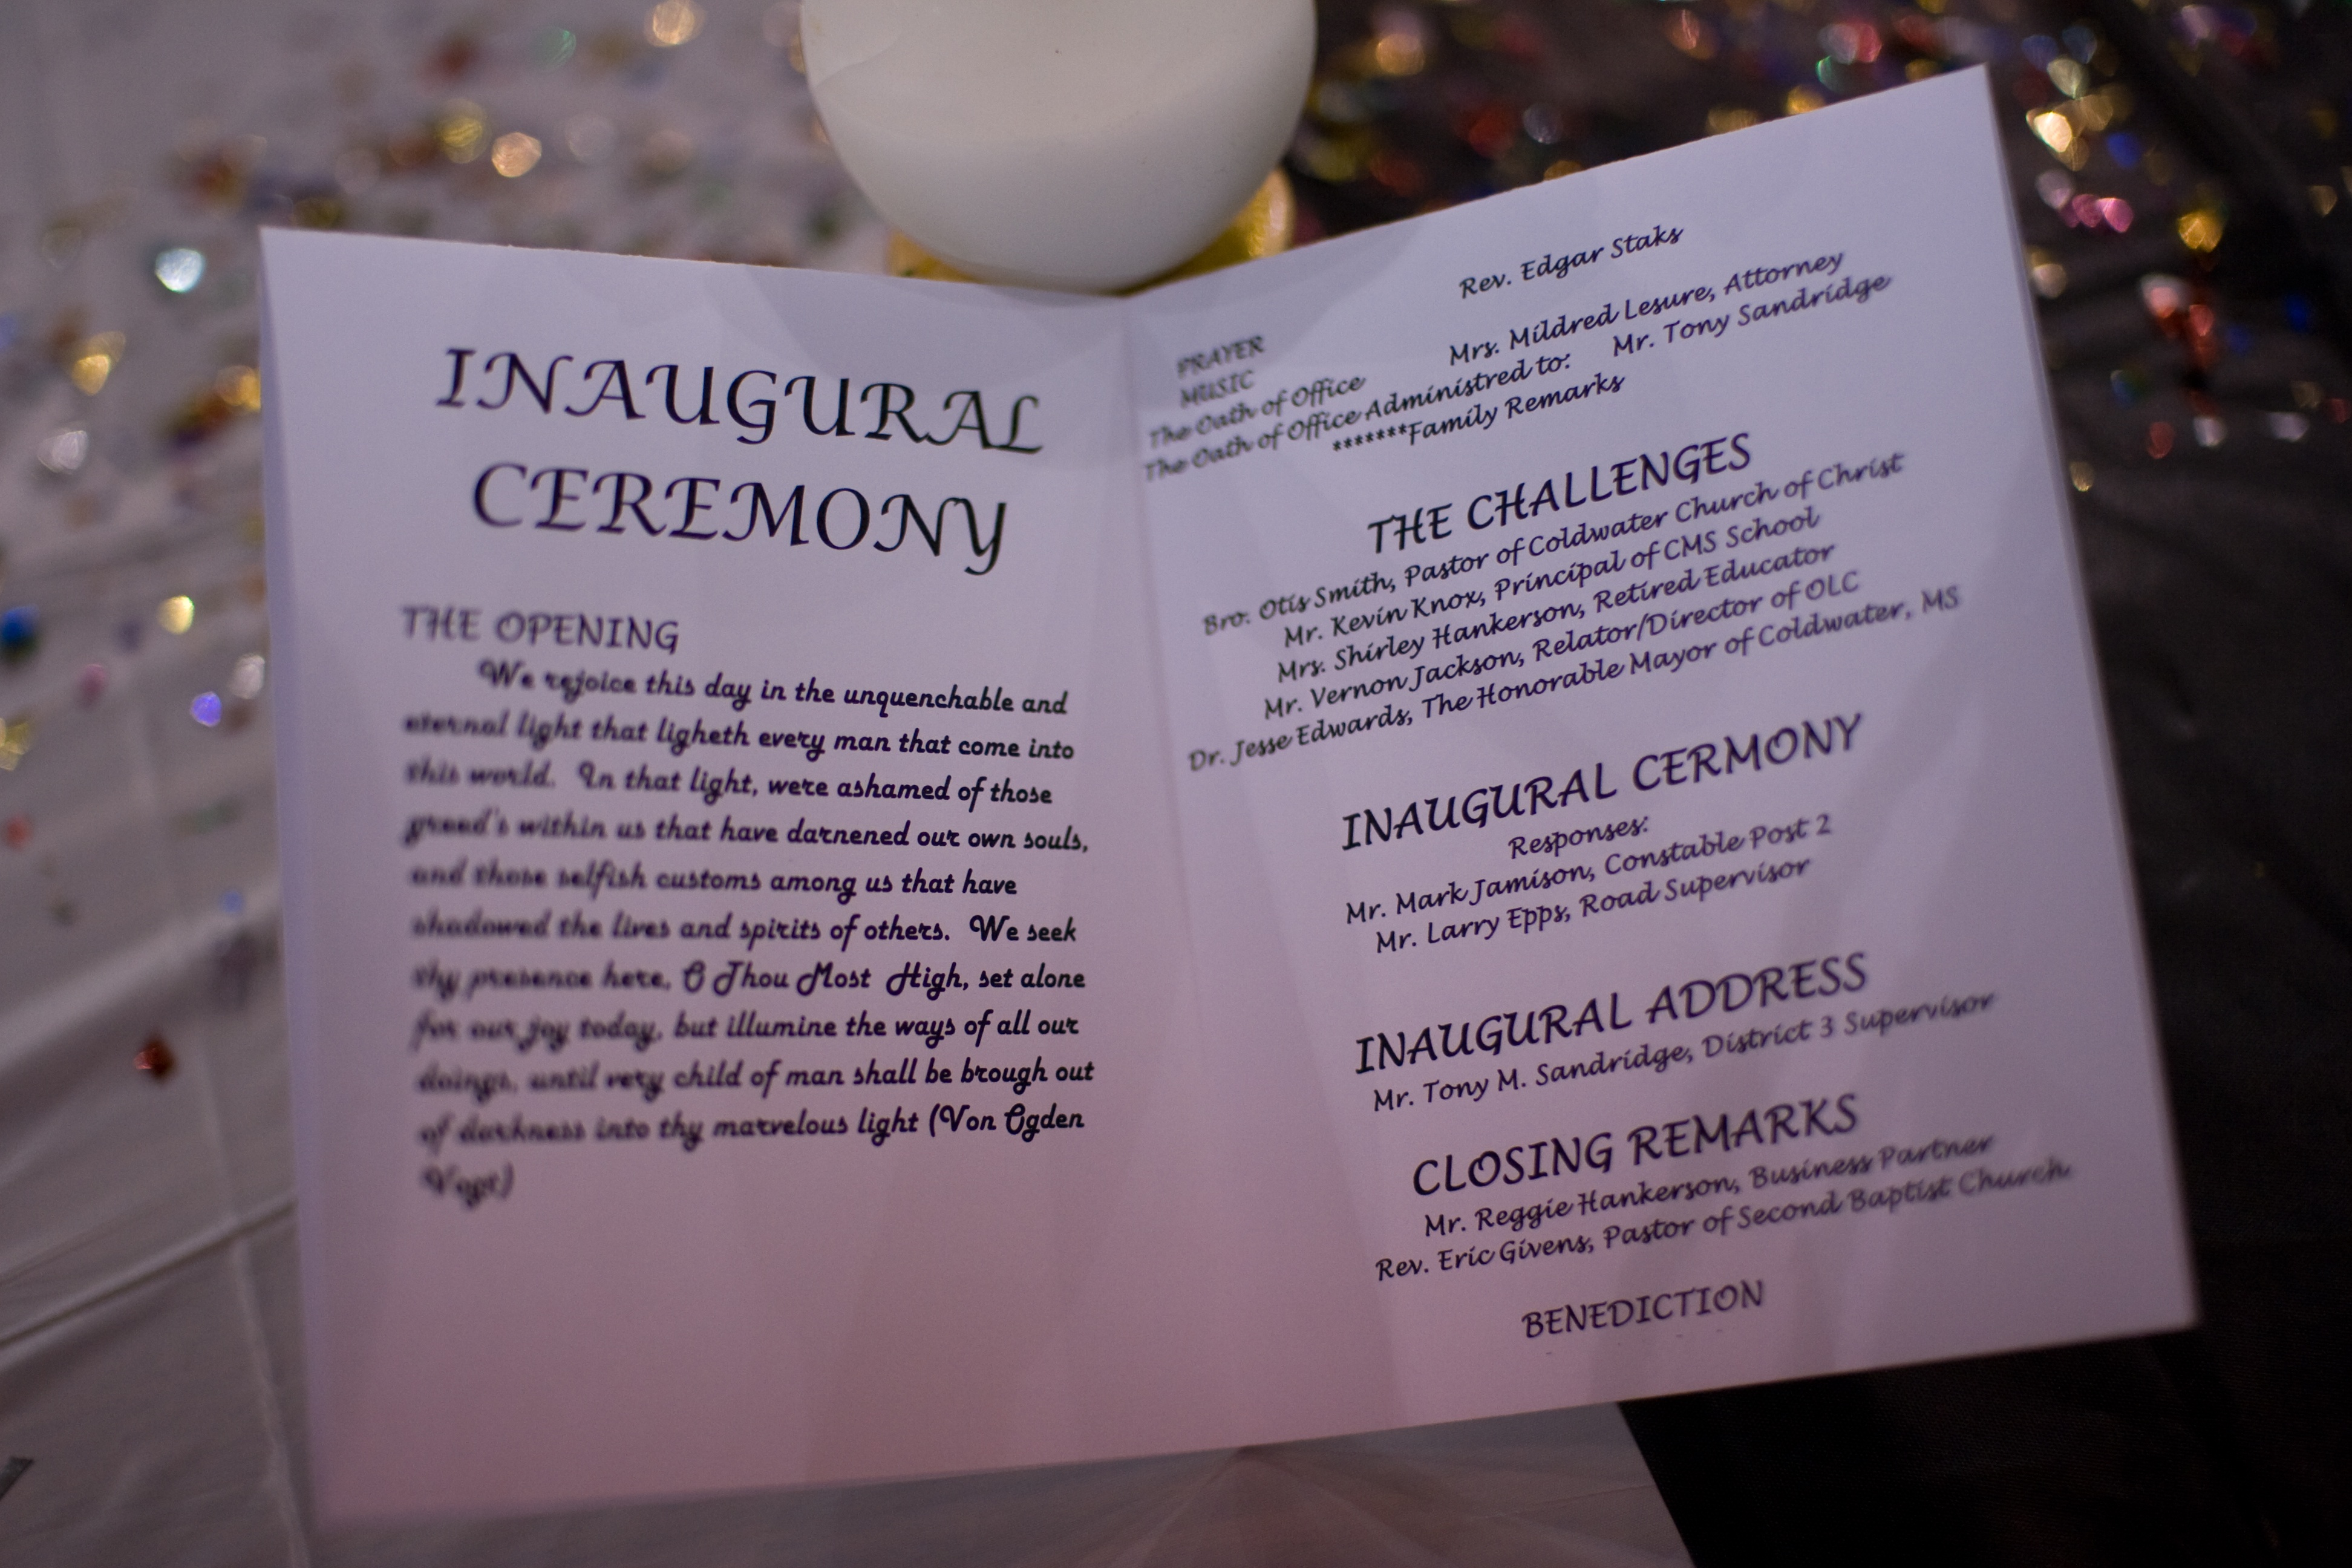 INAUGURAL
CEREMONY
THE OPENING
We rejoice this day in the unquenchable and
eternal light that ligheth every man that come into
this world. In that light, were ashamed of those
greed's within us that have darnened our own souls,
and those selfish customs among us that have
shadowed the lives and spirits of others. We seek
thy presence here, O Thou Most High, set alone
for our joy today, but illumine the ways of all our
doings, until very child of man shall be brough out
of darkness into thy marvelous light (Von Ogden
Vogt)
PRAYER Rev. Edgar Staks
MUSIC
The Oath of Office Mrs. Mildred Lesure, Attorney
The Oath of Office Administred to: Mr. Tony Sandridge
*******Family Remarks
THE CHALLENGES
Bro. Otis Smith, Pastor of Coldwater Church of Christ
Mr. Kevin Knox, Principal of CMS School
Mrs. Shirley Hankerson, Retired Educator
Mr. Vernon Jackson, Relator/Director of OLC
Dr. Jesse Edwards, The Honorable Mayor of Coldwater, MS
INAUGURAL CERMONY
Responses:
Mr. Mark Jamison, Constable Post 2
Mr. Larry Epps, Road Supervisor
INAUGURAL ADDRESS
Mr. Tony M. Sandridge, District 3 Supervisor
CLOSING REMARKS
Mr. Reggie Hankerson, Business Partner
Rev. Eric Givens, Pastor of Second Baptist Church
BENEDICTION